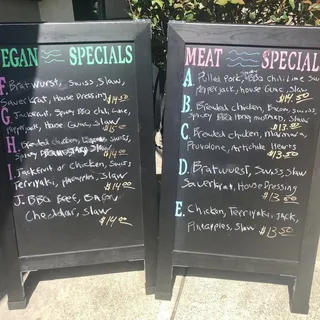 EGAN SPECIALS
F. Bratwurst, Swiss, Slaw,
Sauerkraut, House Dressing
$14.50
G. Jackfruit, Spicy BBQ Slaw,
Pepperjack, House Sauce, Slaw
H. Breaded chicken, Swiss,
Spicy Slaw
$14.00
I. Jackfruit or Chicken, Swiss
Terriyaki, pineapples, Slaw
$14.00
J. BBQ Beef, Bacon
Cheddar, Slaw
$14.00
MEAT SPECIAL
A. Pulled Pork, BBQ Chili Lime
Pepperjack, house sauce, Slaw
$14.50
B. Breaded chicken, Bacon, Swiss,
Spicy BBQ Hong mustard, Slaw
$13.00
C. Breaded chicken, marinara,
Provolone, Artichoke Hearts
$13.50
D. Bratwurst, Swiss, Slaw
Sauerkraut, House Dressing
$13.50
E. Chicken, Terriyaki, Jack,
Pineapples, Slaw
$13.50